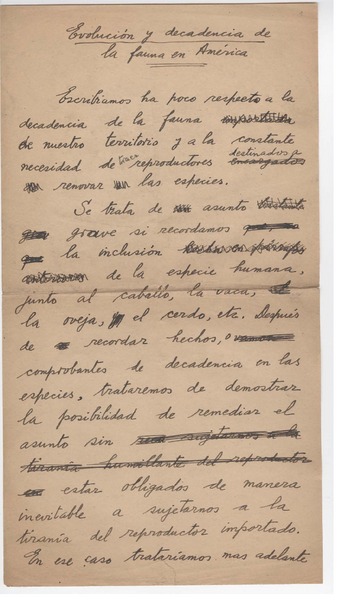 Evolución y decadencia de
la fauna en América
Escribíamos ha poco respecto a la
decadencia de la fauna
de nuestro territorio y a la constante
necesidad de traer reproductores destinados a encargados
renovar las especies.
Se trata de asunto
grave si recordamos
la inclusión
de la especie humana,
junto al caballo, la vaca,
la oveja, y el cerdo, etc. Después
de recordar hechos, o
comprobantes de decadencia en las
especies, trataremos de demostrar
la posibilidad de remediar el
asunto sin sujetarnos a la
tiranía humillante del reproductor
estar obligados de manera
inevitable a sujetarnos a la
tiranía del reproductor importado.
En ese caso trataríamos mas adelante